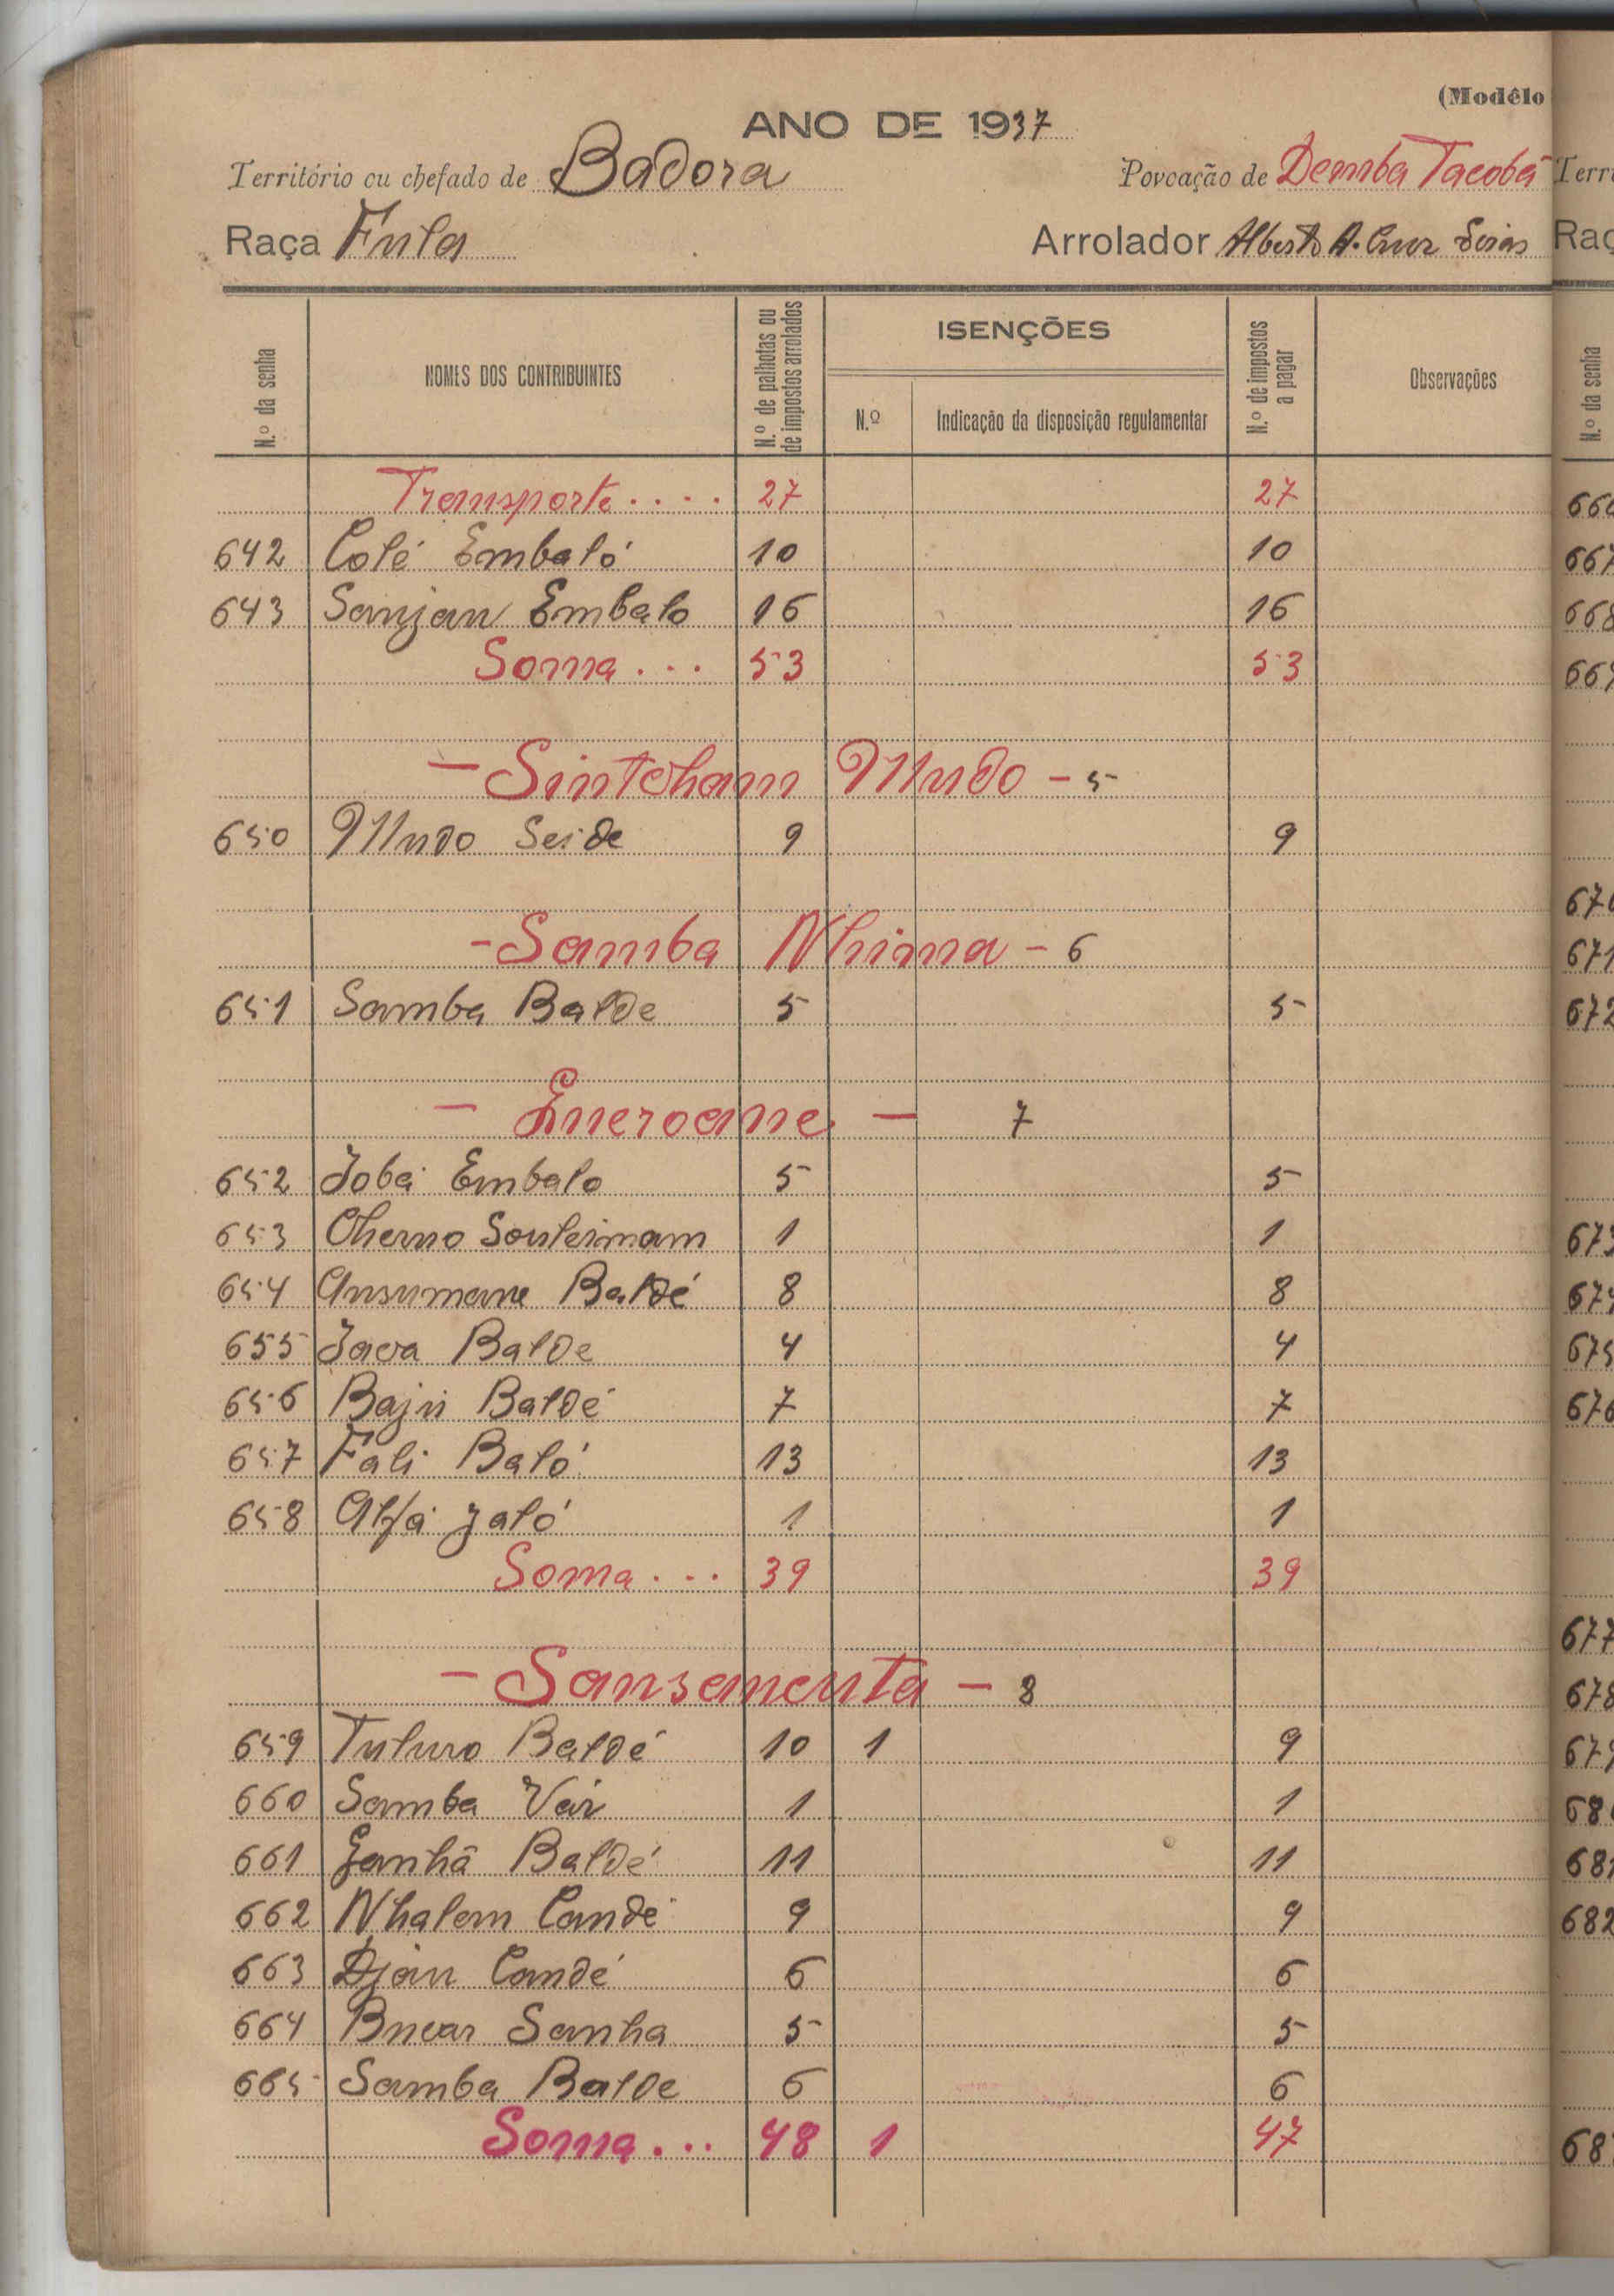 (Modêlo
ANO DE 1937
Território ou chefado de Badora
Povoação de Demba Tacobá
Raça Fula
Arrolador Alberto A. Cruz
N.º da senha
NOMES DOS CONTRIBUINTES
N.º de palhotas ou de impostos arrolados
ISENÇÕES
N.º
Indicação da disposição regulamentar
N.º de impostos a pagar
Observações
Transporte.... 27 27
642 Colé Embaló 10 10
643 Sanjan Embalo 16 16
Soma... 53 53
- Sintcham Mudo - 5
650 Mudo Seide 9 9
- Samba Nhima - 6
651 Samba Balde 5 5
- Eneroane - 7
652 Jobá Embalo 5 5
653 Cherno Souleimam 1 1
654 Ansumane Baldé 8 8
655 Java Balde 4 4
656 Baju Baldé 7 7
657 Fali Baló 13 13
658 Alfá Jaló 1 1
Soma... 39 39
- Sansamenta - 8
659 Tuluro Baldé 10 1 9
660 Samba Vár 1 1
661 Janhã Baldé 11 11
662 Nhalem Candé 9 9
663 Djan Candé 6 6
664 Bucar Sanha 5 5
665 Samba Balde 6 6
Soma... 48 1 47
Terri
Raç
N.º da senha
667
668
671
672
677
678
682